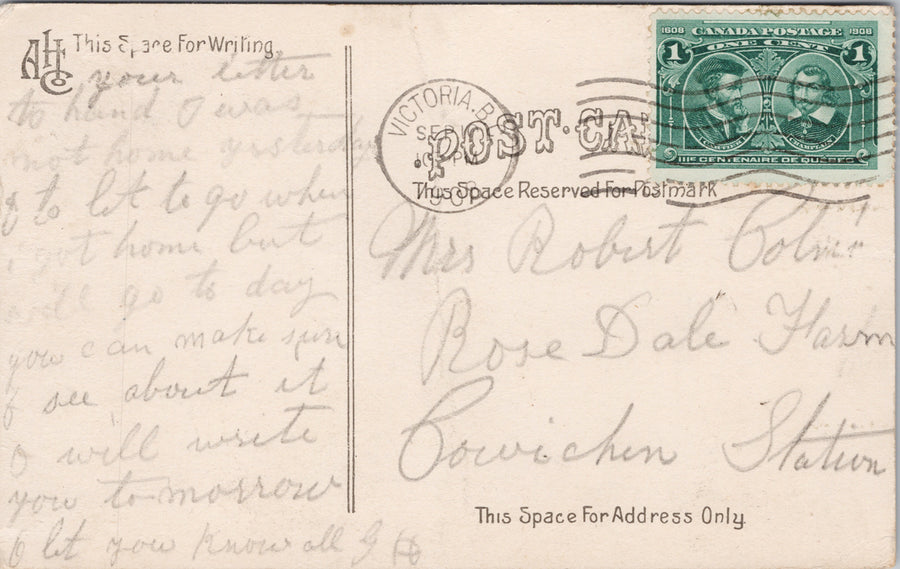 AHC
This Space For Writing
your letter
to hand I was
not home yesterday
to lat to go when
i got home but
will go to day
you can make sure
I see about it
I will write
you to morrow
& let you know all G
VICTORIA, B.
SEP
PM
POST CA
This Space Reserved For Postmark
1608 CANADA POSTAGE 1908
1 ONE CENT 1
CARTIER CHAMPLAIN
IIIE CENTENAIRE DE QUÉBEC
Mrs Robert
Rose Dale Farm
Cowichen Station
This Space For Address Only